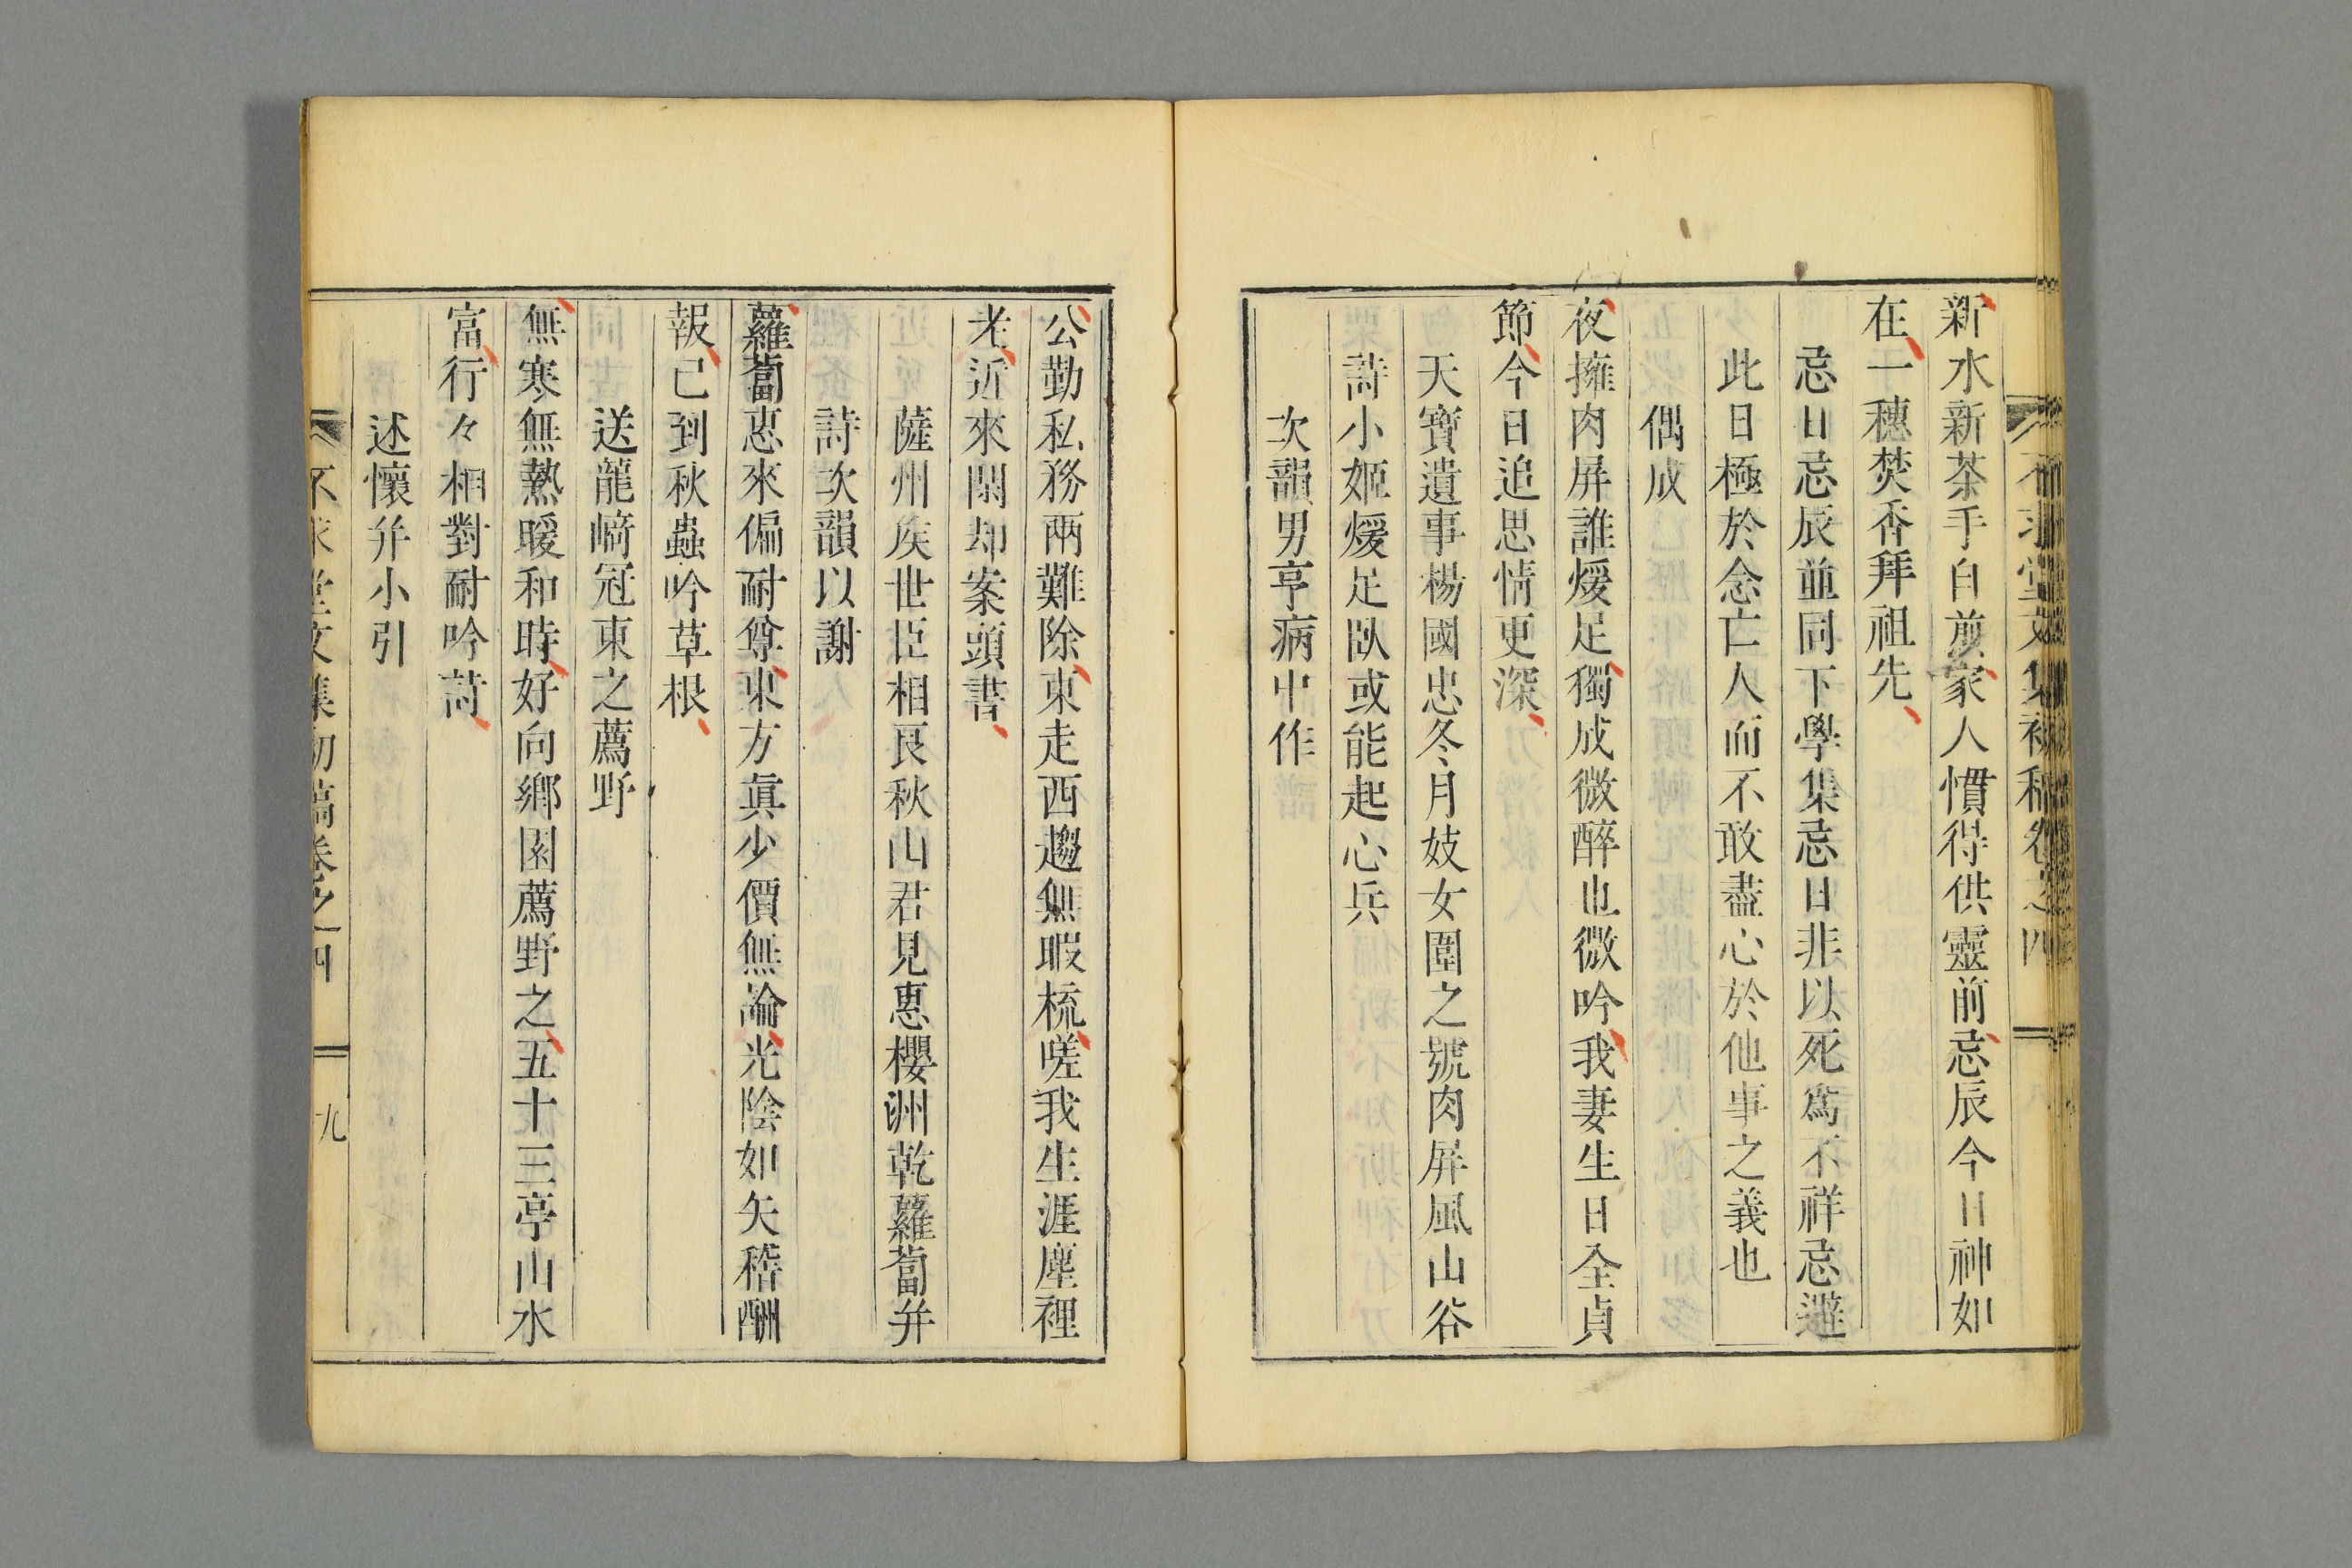 新水新茶手自煎家人慣得供靈前忌辰今日神如
在一穗焚香拜祖先
忌日忌辰並同下學集忌日非以死爲不祥忌避
此日極於念亡人而不敢盡心於他事之義也
偶成
夜擁肉屏誰煖足獨成微醉也微吟我妻生日全貞
節今日追思情更深
天寶遺事楊國忠冬月妓女圍之號肉屏風山谷
詩小姬煖足臥或能起心兵
次韻男亨病中作
公勤私務兩難除東走西趨無暇梳嗟我生涯塵裡
老近來閑却案頭書
薩州矦世臣相良秋山君見惠櫻洲乾蘿蔔并
詩次韻以謝
蘿蔔惠來偏耐尊東方眞少價無論光陰如矢稽酬
報已到秋蟲吟草根
送龍﨑冠東之薦野
無寒無熱暖和時好向鄉園薦野之五十三亭山水
富行々相對耐吟詩
述懷并小引
不求堂文集初稿卷之四 九